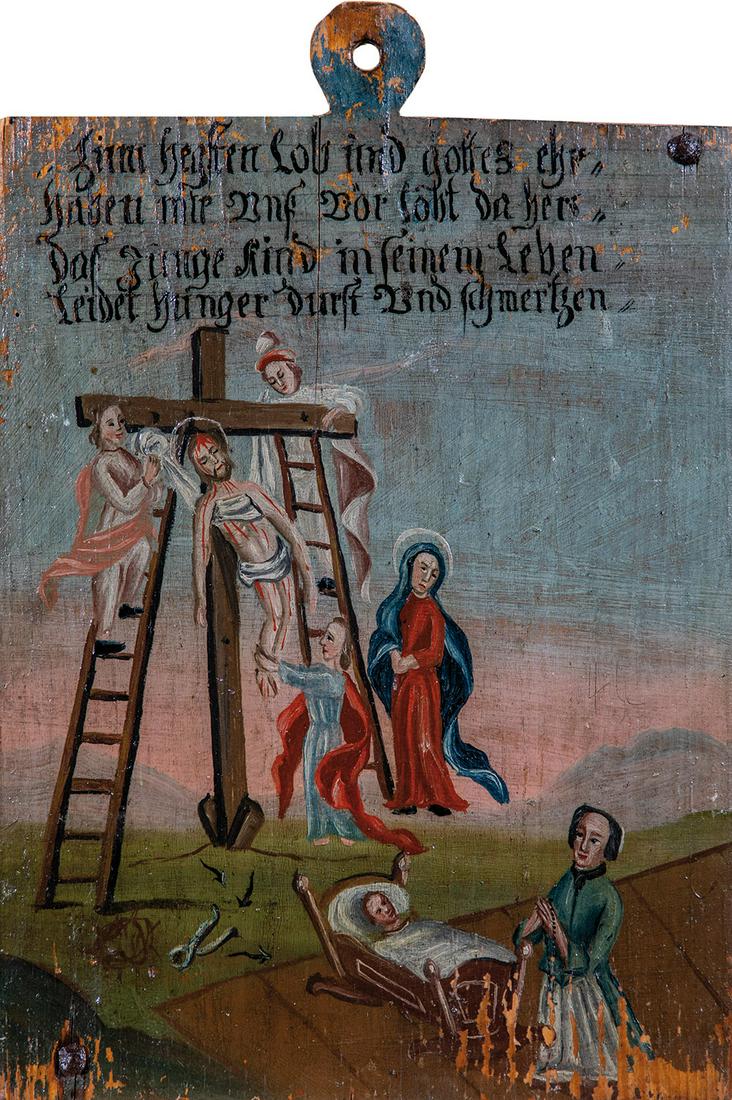 Zum hegsten Lob und gottes ehr =
Haben mir Vnß Vor Löbt da hers =
Das Junge Kind in seinem Leben =
Leidet Hunger durst Vnd schmertzen =